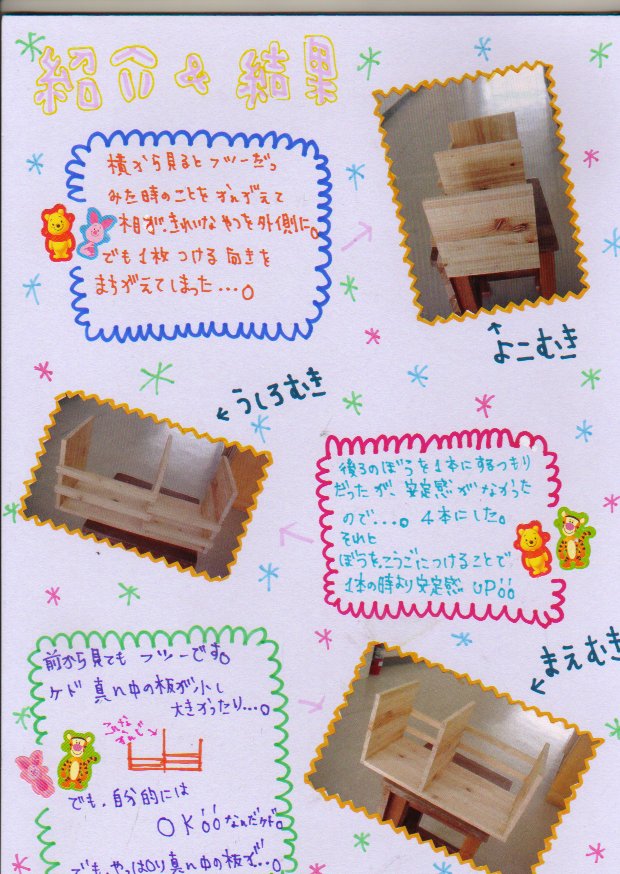 紹介 & 結果
横から見るとフツーだっ
みた時のことをかんがえて
木目が、きれいなやつを外側に。
でも1枚つける向きを
まちがえてしまった…。
↑
よこむき
←うしろむき
後ろのぼうを1本にするつもり
だったが、安定感がなかった
ので…。4本にした。
それと
ぼうをこうごにつけることで
1本の時より安定感UP!!
まえむき
前から見てもフツーです。
ケド真ん中の板が少し
大きかったり…。
こんな
かんじ
でも、自分的には
OK!!なんだケド。
でも、やっぱり真ん中の板が…。